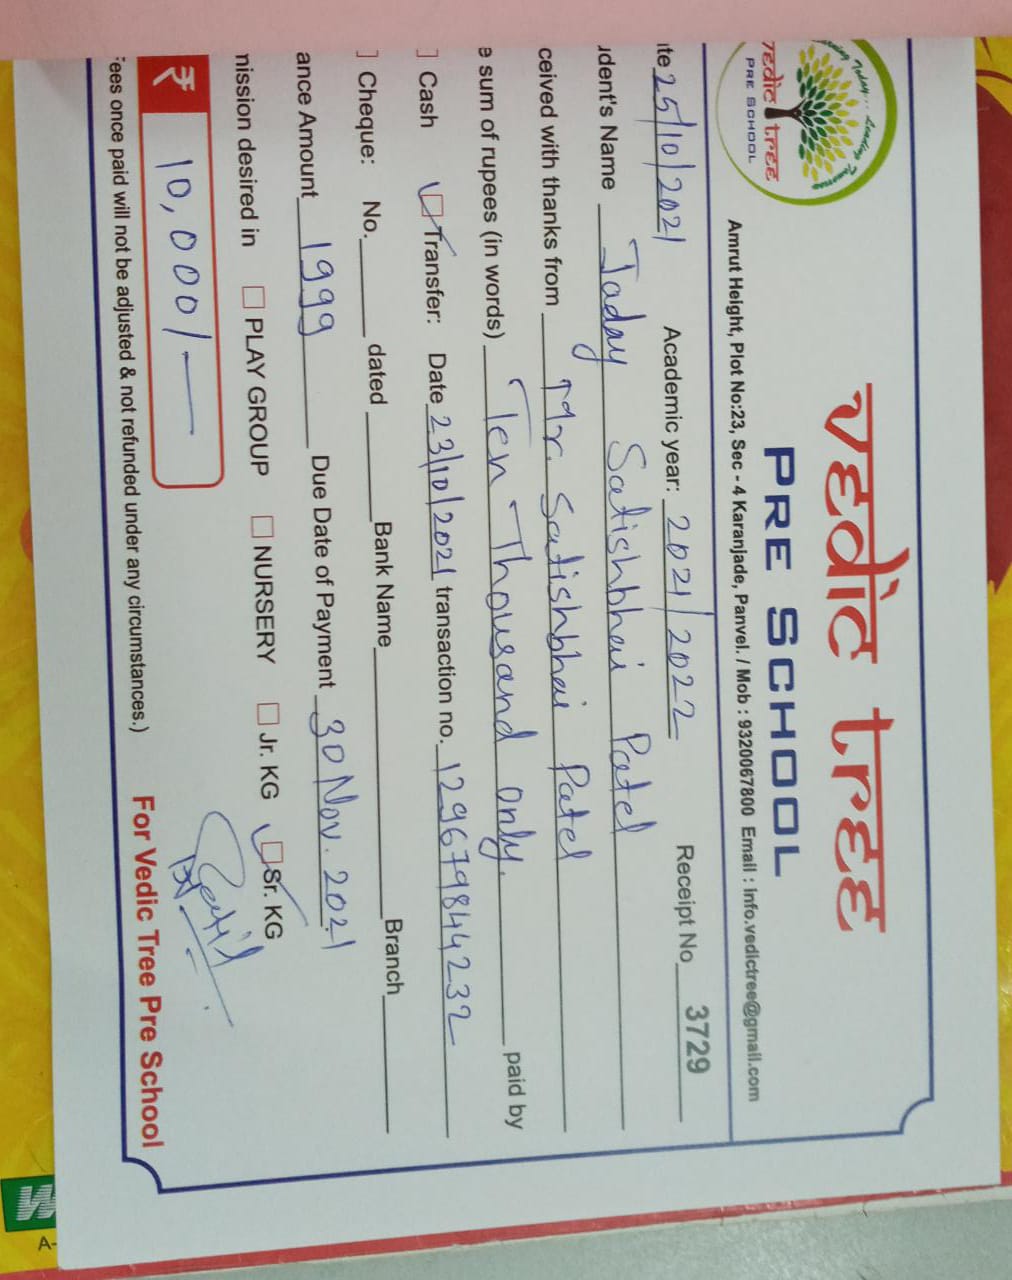 Vedic tree
PRE SCHOOL
Vedic tree
PRE SCHOOL
Amrut Height, Plot No:23, Sec - 4 Karanjade, Panvel. / Mob : 9320067800 Email : info.vedictree@gmail.com
ate 25/10/2021 Academic year: 2021/2022 Receipt No 3729
udent's Name Jaday Satishbhai Patel
ceived with thanks from Mr. Satishbhai Patel
e sum of rupees (in words) Ten Thousand only. paid by
Cash Transfer: Date 23/10/2021 transaction no. 129679844232
Cheque: No. dated Bank Name Branch
ance Amount 1999 Due Date of Payment 30 Nov. 2021
mission desired in PLAY GROUP NURSERY Jr. KG Sr. KG
₹ 10,000/-
Fees once paid will not be adjusted & not refunded under any circumstances.) For Vedic Tree Pre School